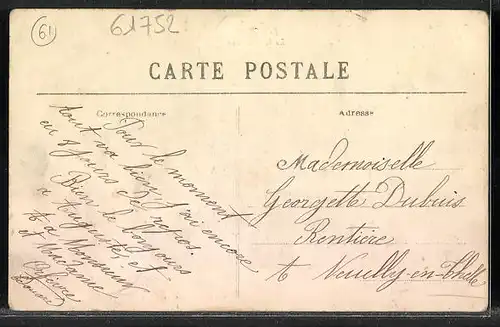 61
61752
CARTE POSTALE
Correspondance
Adresse
Pour le moment
tout va bien j'ai encore
eu 8 jours de repos.
Bien le bonjours
a Auguste, et
a Monsieur
et Madame
Mademoiselle
Georgette Dubuis
Rentière
à Neuilly-en-Thelle